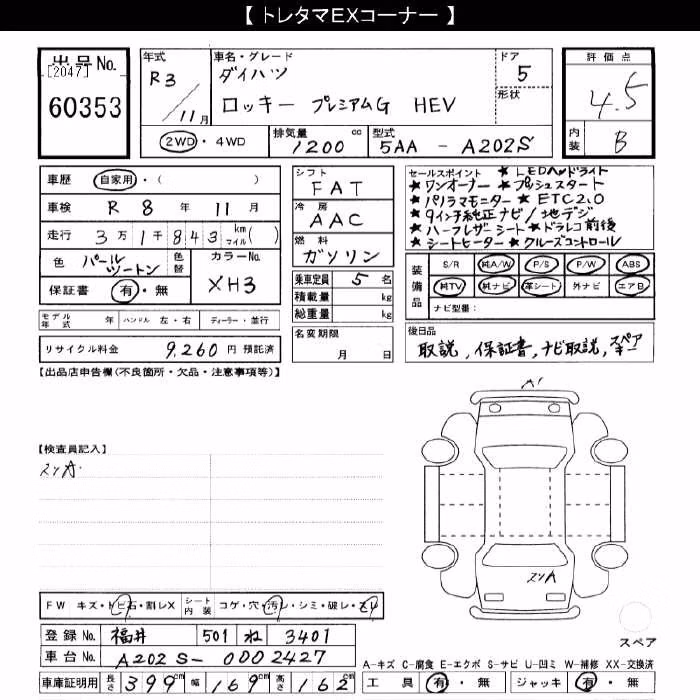 【 トレタマEXコーナー 】
出品No.
[2047]
60353
年式
R3 / 11月
車名・グレード
ダイハツ
ロッキー プレミアムG HEV
ドア
5
形状
評価点
4.5
内装
B
2WD・4WD
排気量 1200 cc
型式 5AA - A202S
車歴 自家用・( )
車検 R 8 年 11 月
走行 3万1千843 km マイル( )
色 パールツートン
色替
カラーNo.
XH3
保証書 有・無
モデル年式 年 ハンドル 左・右 ディーラー・並行
リサイクル料金 9,260 円 預託済
シフト
FAT
冷房
AAC
燃料
ガソリン
乗車定員 5 名
積載量 kg
総重量 kg
名変期限
月 日
セールスポイント ★ LEDヘッドライト
★ ワンオーナー ★ プッシュスタート
★ パノラマモニター ★ ETC2.0
★ 9インチ純正ナビ/地デジ
★ ハーフレザーシート ★ ドラレコ前後
★ シートヒーター ★ クルーズコントロール
装備品
S/R 純A/W P/S P/W ABS
純TV 純ナビ 革シート 外ナビ エアB
ナビ型番:
後日品
取説, 保証書, ナビ取説, スペアキー
【出品店申告欄(不良箇所・欠品・注意事項等)】
【検査員記入】
A1
FW キズ・トビ石・割レX
シート内装 コゲ・穴・汚レ・シミ・破レ・スレ
登録No. 福井 501 ね 3401
車台No. A202S-0002427
車庫証明用 長さ 399cm 幅 169cm 高さ 162cm
スペア
A-キズ C-腐食 E-エクボ S-サビ U-凹ミ W-補修 XX-交換済
工具 有・無 ジャッキ 有・無